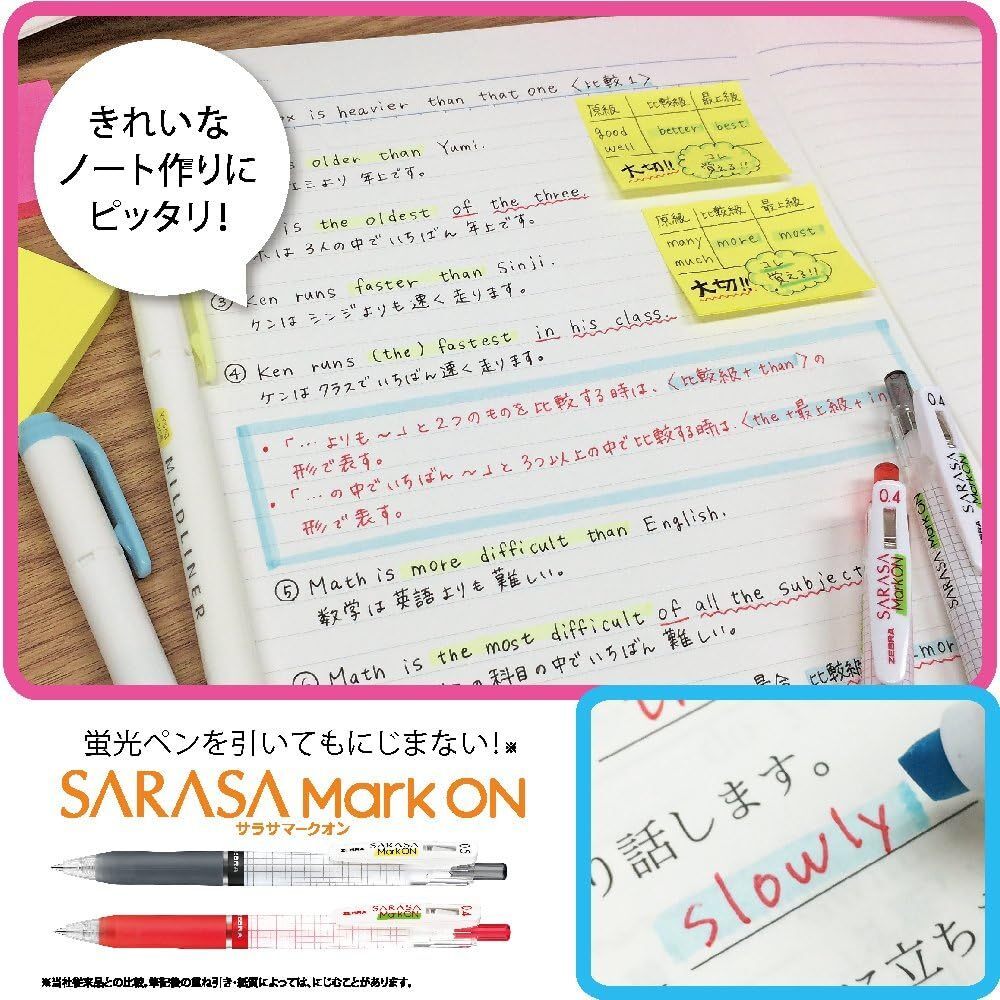 きれいな
ノート作りに
ピッタリ!
is heavier than that one 〈比較1〉
older than Yumi.
ユミより 年上です。
is the oldest of the three.
は 3人の中でいちばん 年上です。
③ Ken runs faster than Sinji.
ケンは シンジよりも 速く 走ります。
④ Ken runs (the) fastest in his class.
ケンは クラスでいちばん 速く 走ります。
原級 比較級 最上級
good better best
well
大切!! コレ
覚える!!
原級 比較級 最上級
many more most
much
大切!! コレ
覚える!!
・「…よりも〜」と2つのものを比較する時は、〈比較級+than〉の
形で表す。
・「…の中でいちばん〜」と3つ以上の中で比較する時は、〈the+最上級+in
形で表す。
⑤ Math is more difficult than English.
数学は英語よりも難しい。
Math is the most difficult of all the subject
の科目の中でいちばん 難しい。
比較級
more
MILDLINER
0.4
SARASA
Mark ON
ZEBRA
0.4
SARASA
Mark ON
SARASA
Mark ON
蛍光ペンを引いてもにじまない!※
SARASA Mark ON
サラサマークオン
ZEBRA
SARASA
Mark ON
0.5
ZEBRA
ZEBRA
SARASA
Mark ON
0.4
※当社従来品との比較。筆記後の重ね引き・紙質によっては、にじむことがあります。
り話します。
slowly
に立ち